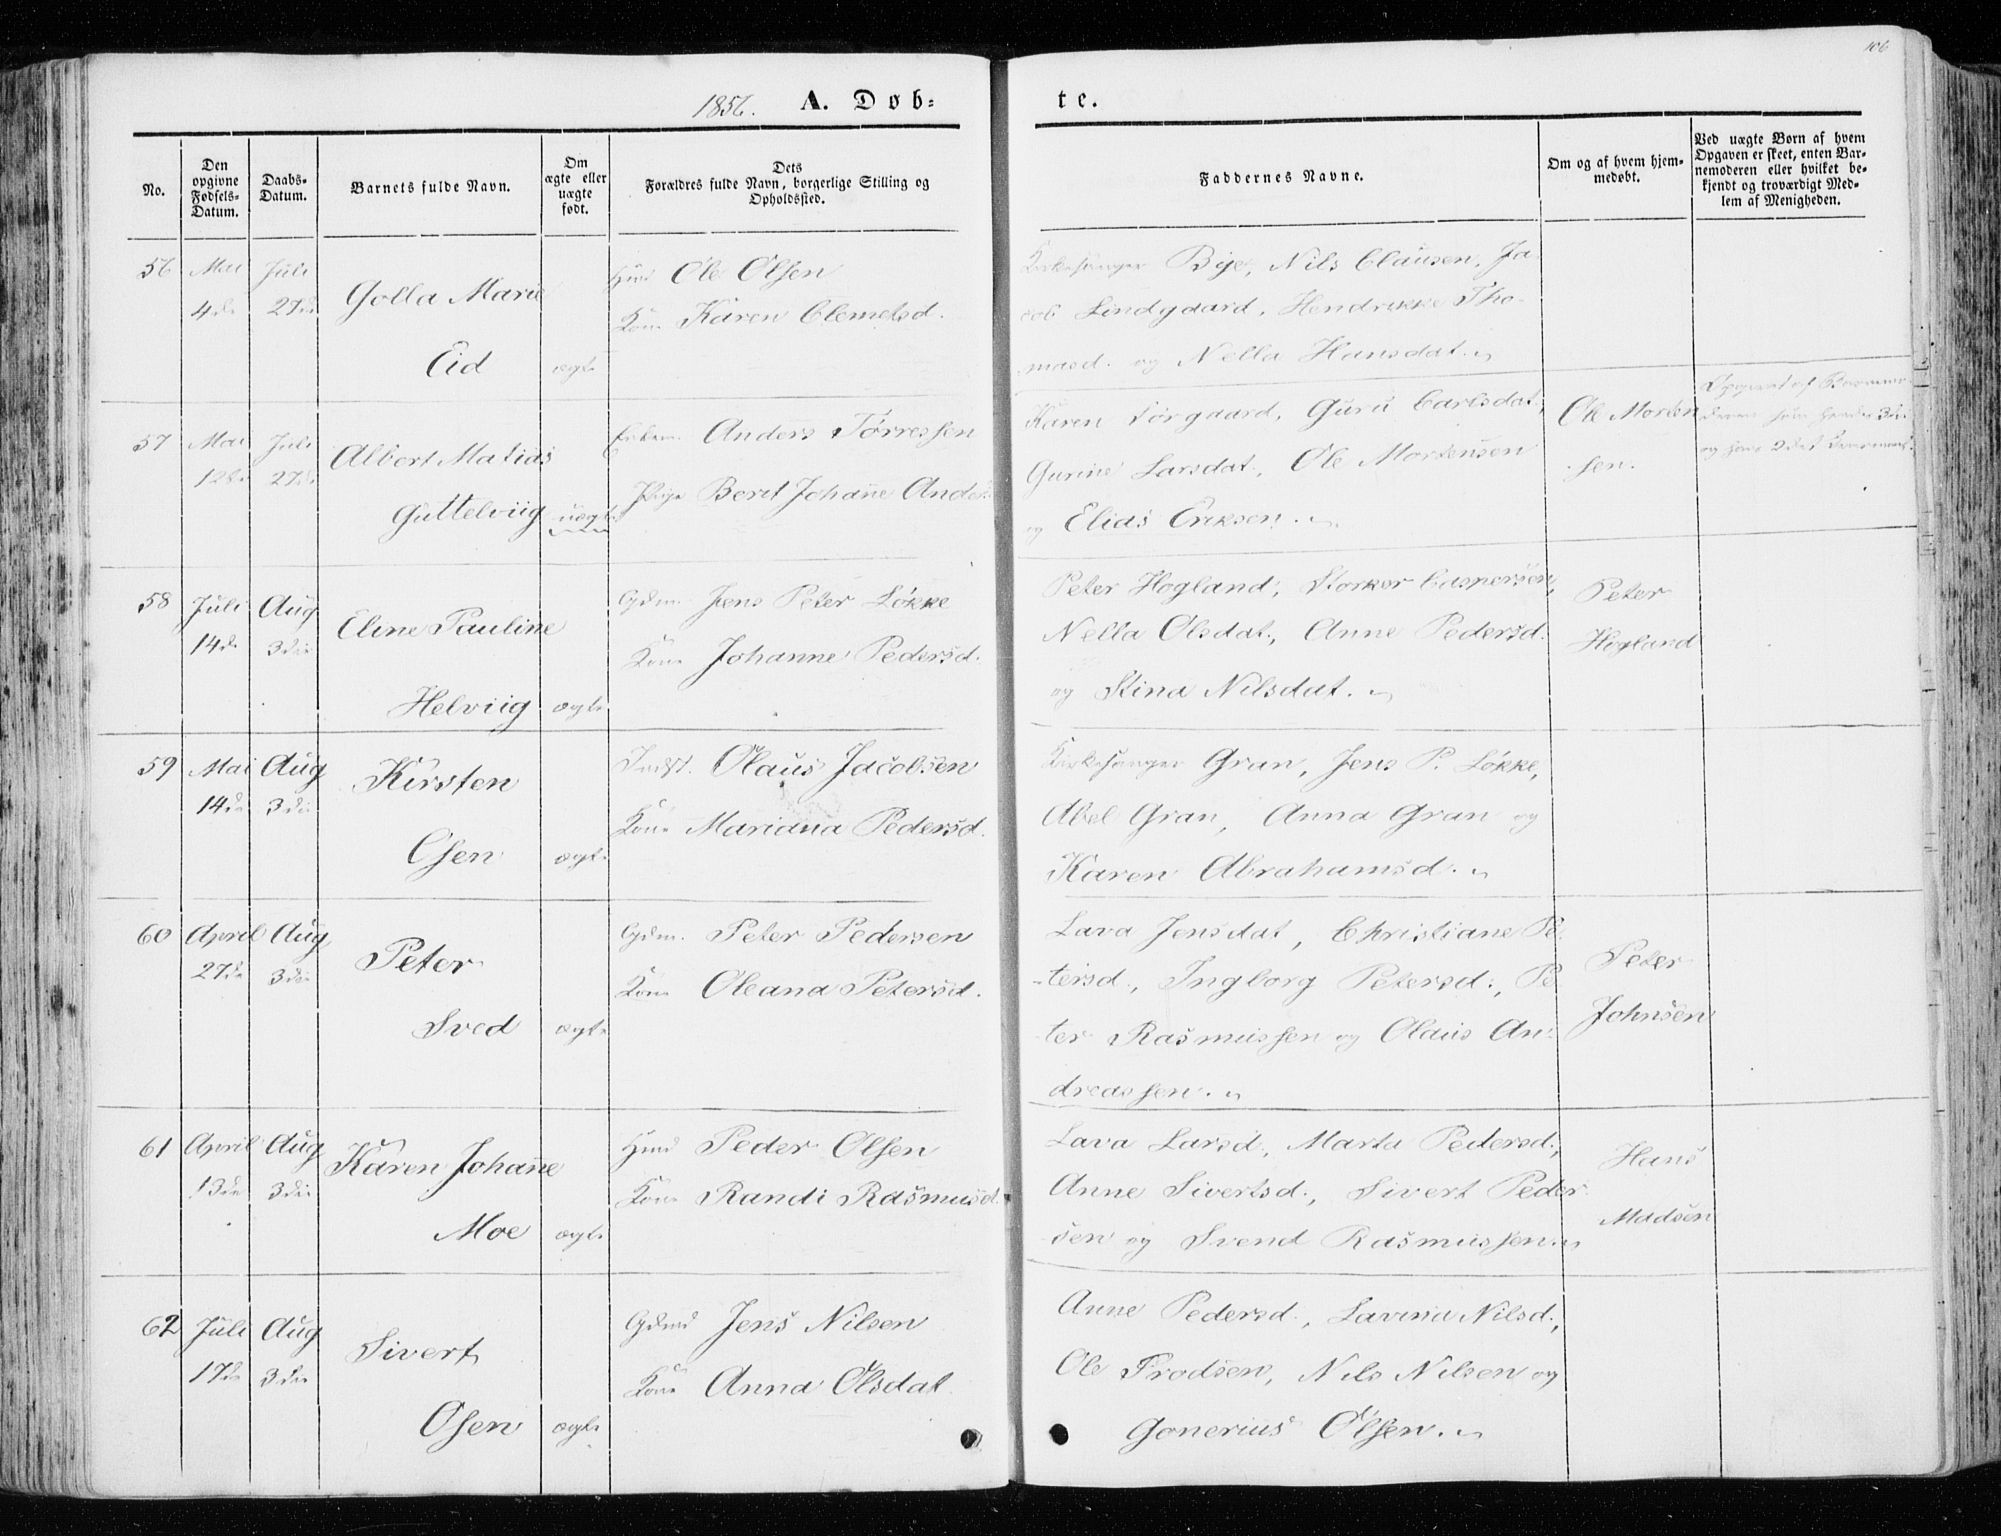 106
1856. A. Døb= te.
No.
Den opgivne Fødsels-Datum.
Daabs-Datum.
Barnets fulde Navn.
Om ægte eller uægte født.
Dets
Forældres fulde Navn, borgerlige Stilling og
Opholdssted.
Faddernes Navne.
Om og af hvem hjem-
medøbt.
Ved uægte Børn af hvem
Opgaven er skeet, enten Bar-
nemoderen eller hvilket be-
kjendt og troværdigt Med-
lem af Menigheden.
56 Mai Juli Golla Marie Huusm Ole Olsen Kirkesanger Bye, Nils Clausen, Ja-
4de 27de Kone Karen Clemetsd. cob Lindgaard, Hendrikke Tho-
Eid ægte masd. og Nella Hansdat.
57 Mai Juli Albert Matias Anders Torressen Karen Torgaard, Guru Carlsdat., Ole Morten Opgivet af Barnemo-
12te 27de Pige Berit Johanne Anders Gurine Larsdat., Ole Mortensen sen.
Guttelviig uægte og Elias Eriksen.
58 Juli Aug Eline Pauline Gdm. Jens Peter Løkke Peter Hogland, Storker Caspersen, Peter
14de 3die Kone Johanne Pedersd. Nella Olsdat., Anne Pedersd. Hogland
Helviig ægte og Stina Nilsdat.
59 Mai Aug Kirsten Indst. Olaus Jacobsen Kirkesanger Gran, Jens P. Løkke,
14de 3die Kone Mariana Pedersd. Abel Gran, Anna Gran og
Osen ægte Karen Abrahamsd.
60 April Aug Peter Gdm. Peter Pedersen Lava Jensdat, Christiane Pe-
27de 3die Kone Oleana Petersd. tersd., Ingborg Petersd., Pe- Peter
Sved ægte ter Rasmussen og Olaus An- Johnsen
dreassen.
61 April Aug Karen Johanne Huusm Peder Olsen Lava Larsd., Marta Pedersd., Hans
13de 3die Kone Randi Rasmusd. Anne Sivertsd., Sivert Peder- Madsen
Moe ægte sen og Svend Rasmussen.
62 Juli Aug Sivert Gdmd Jens Nilsen Anne Pedersd., Lavina Nilsd.,
17de 3die Kone Anna Olsdat Ole Frodsen, Nils Nilsen og
Osen ægte Gonerius Olsen.